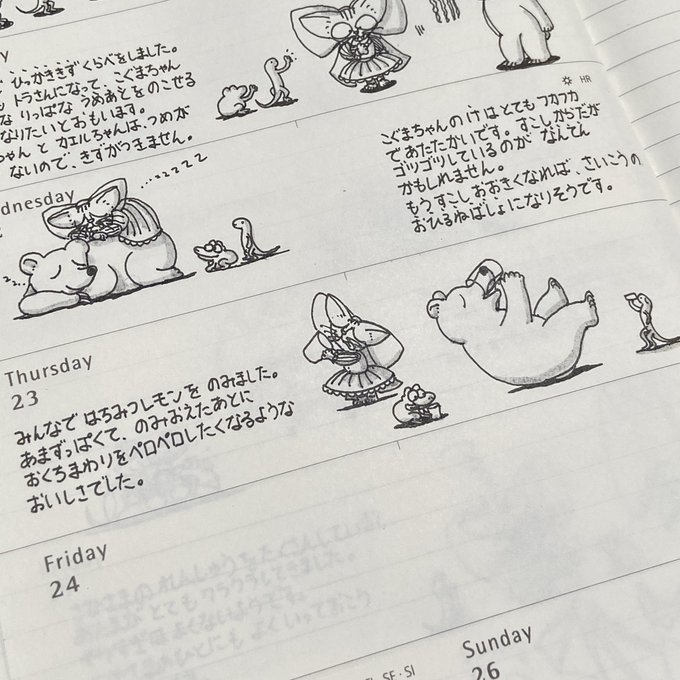 ひっかききずくらべをしました。
トラさんになって、こぐまちゃん
りっぱな つめあとをのこせる
なりたいとおもいます。
ちゃん と カエルちゃんは、つめが
ないので、きずがつきません。
dnesday
HR
こぐまちゃんの け はとてもフカフカ
であたたかいです。すこし からだが
ゴツゴツしているのが なんてん
かもしれません。
もう すこし おおきくなれば、さいこうの
おひるねばしょになりそうです。
...zzzzz
zz...
Thursday
23
みんなで はちみつレモンを のみました。
あまずっぱくて、のみおえたあとに
おくちまわりをペロペロしたくなるような
おいしさでした。
Friday
24
Sunday
26
SE・SI